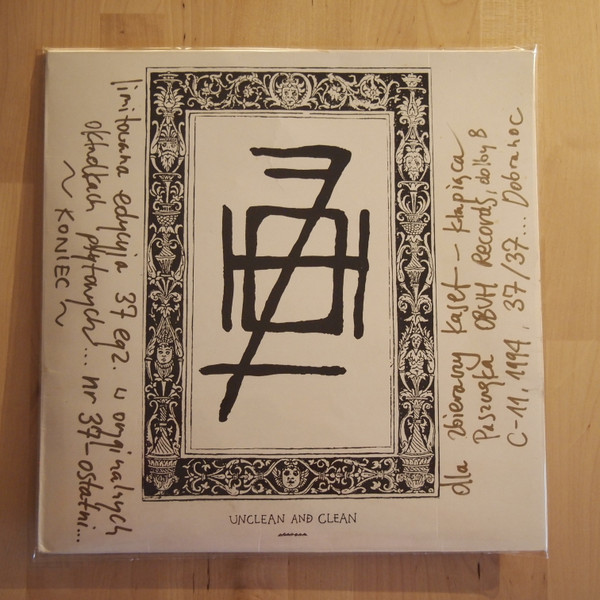 limitowana edycja 37 egz. w oryginalnych
okładkach płytowych... nr 37-ostatni...
~ KONIEC ~
UNCLEAN AND CLEAN
dla zbieraczy kaset - kłapiąca
Paszczęka OBUH Records, dolby B
C-11, 1994, 37/37... Dobranoc